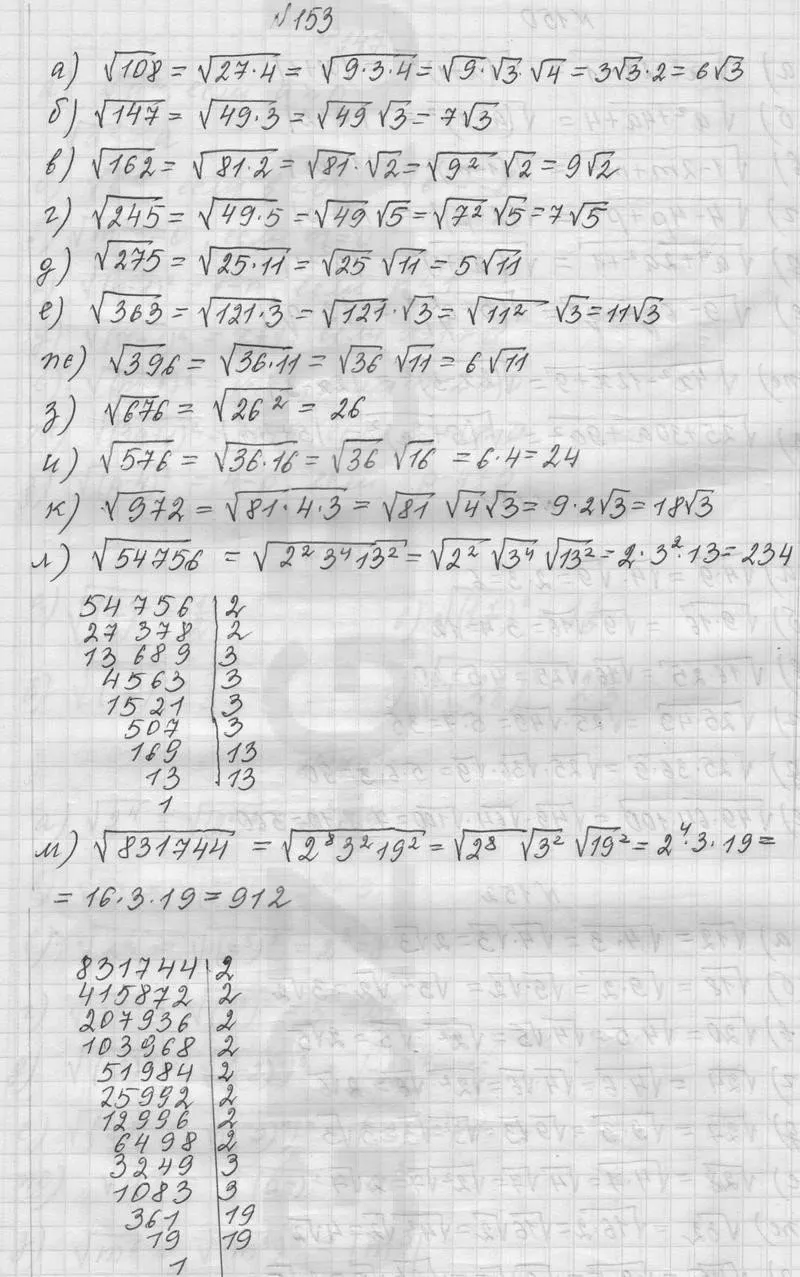 №153
а) √108 = √27·4 = √9·3·4 = √9·√3·√4 = 3√3·2 = 6√3
б) √147 = √49·3 = √49 √3 = 7√3
в) √162 = √81·2 = √81·√2 = √9² √2 = 9√2
г) √245 = √49·5 = √49 √5 = √7² √5 = 7√5
д) √275 = √25·11 = √25 √11 = 5√11
е) √363 = √121·3 = √121·√3 = √11² √3 = 11√3
ж) √396 = √36·11 = √36 √11 = 6√11
з) √676 = √26² = 26
и) √576 = √36·16 = √36 √16 = 6·4 = 24
к) √972 = √81·4·3 = √81 √4 √3 = 9·2√3 = 18√3
л) √54756 = √2² 3⁴ 13² = √2² √3⁴ √13² = 2·3²·13 = 234
54756 | 2
27378 | 2
13689 | 3
4563 | 3
1521 | 3
507 | 3
169 | 13
13 | 13
1
м) √831744 = √2⁸ 3² 19² = √2⁸ √3² √19² = 2⁴·3·19 =
= 16·3·19 = 912
831744 | 2
415872 | 2
207936 | 2
103968 | 2
51984 | 2
25992 | 2
12996 | 2
6498 | 2
3249 | 3
1083 | 3
361 | 19
19 | 19
1